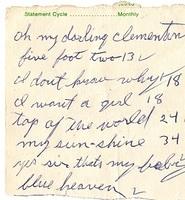 Statement Cycle Monthly
oh my darling clementin
five foot two-132
I dont know why 18
I want a girl 18
top of the world 24
my sun-shine 34
yes sir thats my baby
blue heaven 2